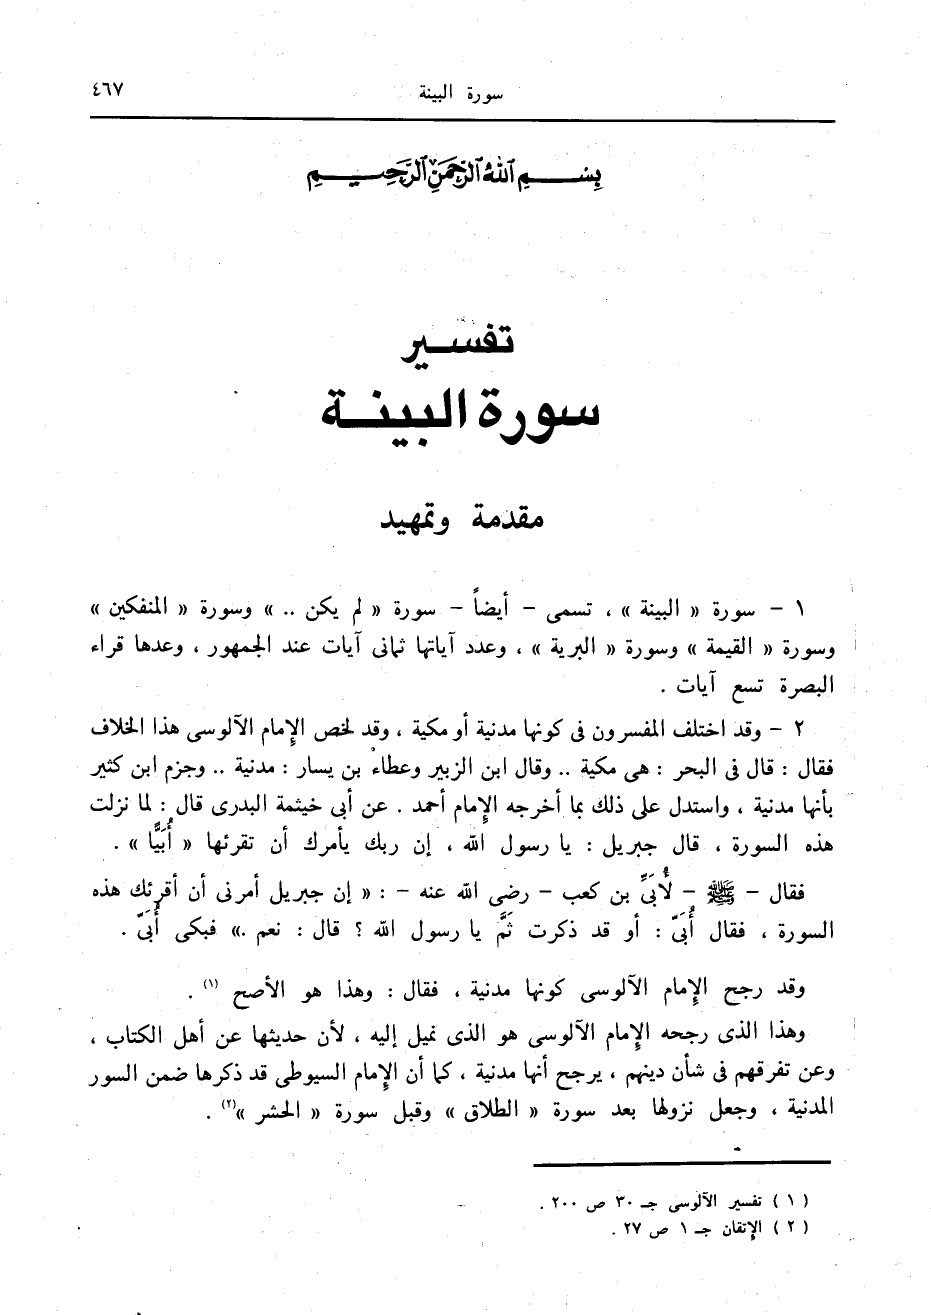 سورة البينة ٤٦٧
بسم الله الرحمن الرحيم
تفسير
سورة البينة
مقدمة وتمهيد
١ – سورة « البينة » ، تسمى – أيضاً – سورة « لم يكن .. » وسورة « المنفكين »
وسورة « القيمة » وسورة « البرية » ، وعدد آياتها ثمانى آيات عند الجمهور ، وعدها قراء
البصرة تسع آيات .
٢ – وقد اختلف المفسرون فى كونها مدنية أو مكية ، وقد لخص الإمام الآلوسى هذا الخلاف
فقال : قال فى البحر : هى مكية .. وقال ابن الزبير وعطاء بن يسار : مدنية .. وجزم ابن كثير
بأنها مدنية ، واستدل على ذلك بما أخرجه الإمام أحمد . عن أبى خيثمة البدرى قال : لما نزلت
هذه السورة ، قال جبريل : يا رسول الله ، إن ربك يأمرك أن تقرئها « أُبَيًّا » .
فقال – ﷺ – لأُبَىِّ بن كعب – رضى الله عنه – : « إن جبريل أمرنى أن أقرئك هذه
السورة ، فقال أُبَىّ : أو قد ذكرت ثَمَّ يا رسول الله ؟ قال : نعم .» فبكى أُبَىّ .
وقد رجح الإمام الآلوسى كونها مدنية ، فقال : وهذا هو الأصح (١) .
وهذا الذى رجحه الإمام الآلوسى هو الذى نميل إليه ، لأن حديثها عن أهل الكتاب ،
وعن تفرقهم فى شأن دينهم ، يرجح أنها مدنية ، كما أن الإمام السيوطى قد ذكرها ضمن السور
المدنية ، وجعل نزولها بعد سورة « الطلاق » وقبل سورة « الحشر »(٢) .
( ١ ) تفسير الآلوسى جـ ٣٠ ص ٢٠٠ .
( ٢ ) الإتقان جـ ١ ص ٢٧ .